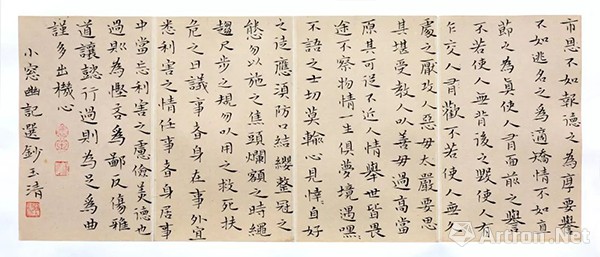 市恩不如報德之為厚要譽
不如逃名之為適矯情不如直
節之為真使人有面前之譽
不若使人無背後之毀使人有
乍交人有歡不若使人無久
處之厭攻人惡毋太嚴要思
其堪受教人以善毋過高當
原其可從不近人情舉世皆畏
途不察物情一生俱夢境遇嘿〻
不語之士切莫輸心見悻〻自好
之徒應須防口結纓整冠之
態勿以施之焦頭爛額之時繩
趨尺步之規勿以用之救死扶
危之日議事者身在事外宜
悉利害之情任事者身居事
中當忘利害之慮儉美德也
過則為慳吝為鄙反傷雅
道讓懿行過則為足為曲
謹多出機心
小窓幽記選鈔玉清
雅昌艺术网
Artron.Net